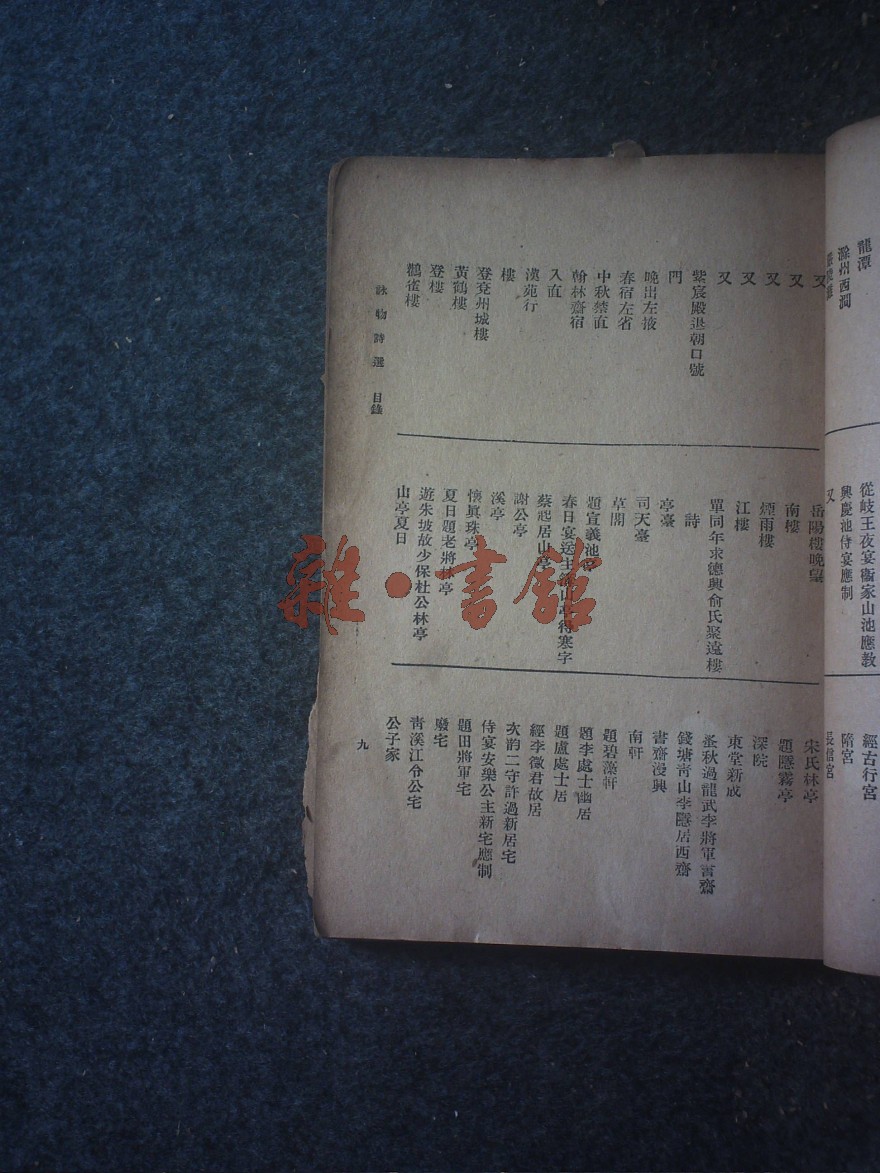 龍潭
滁州西澗
又
又
又
又
又
紫宸殿退朝口號
門
晚出左掖
春宿左省
中秋禁直
翰林齋宿
入直
漢苑行
樓
登兗州城樓
黃鶴樓
登樓
鸛雀樓
詠物詩選 目錄
從岐王夜宴衞家山池應教
興慶池侍宴應制
又
岳陽樓晚望
南樓
煙雨樓
江樓
單同年求德興俞氏聚遠樓
詩
亭臺
司天臺
草閣
題宣義池亭
春日宴送主簿山亭得寒字
蔡起居山亭
謝公亭
溪亭
懷眞珠亭
夏日題老將林亭
遊朱坡故少保杜公林亭
山亭夏日
經古行宮
隋宮
長信宮
宋氏林亭
題隱霧亭
深院
東堂新成
蚤秋過龍武李將軍書齋
錢塘青山李隱居西齋
書齋漫興
南軒
題碧藻軒
題李處士幽居
題盧處士居
經李徵君故居
次韵二守許過新居宅
侍宴安樂公主新宅應制
題田將軍宅
廢宅
青溪江令公宅
公子家
九
雜·書館